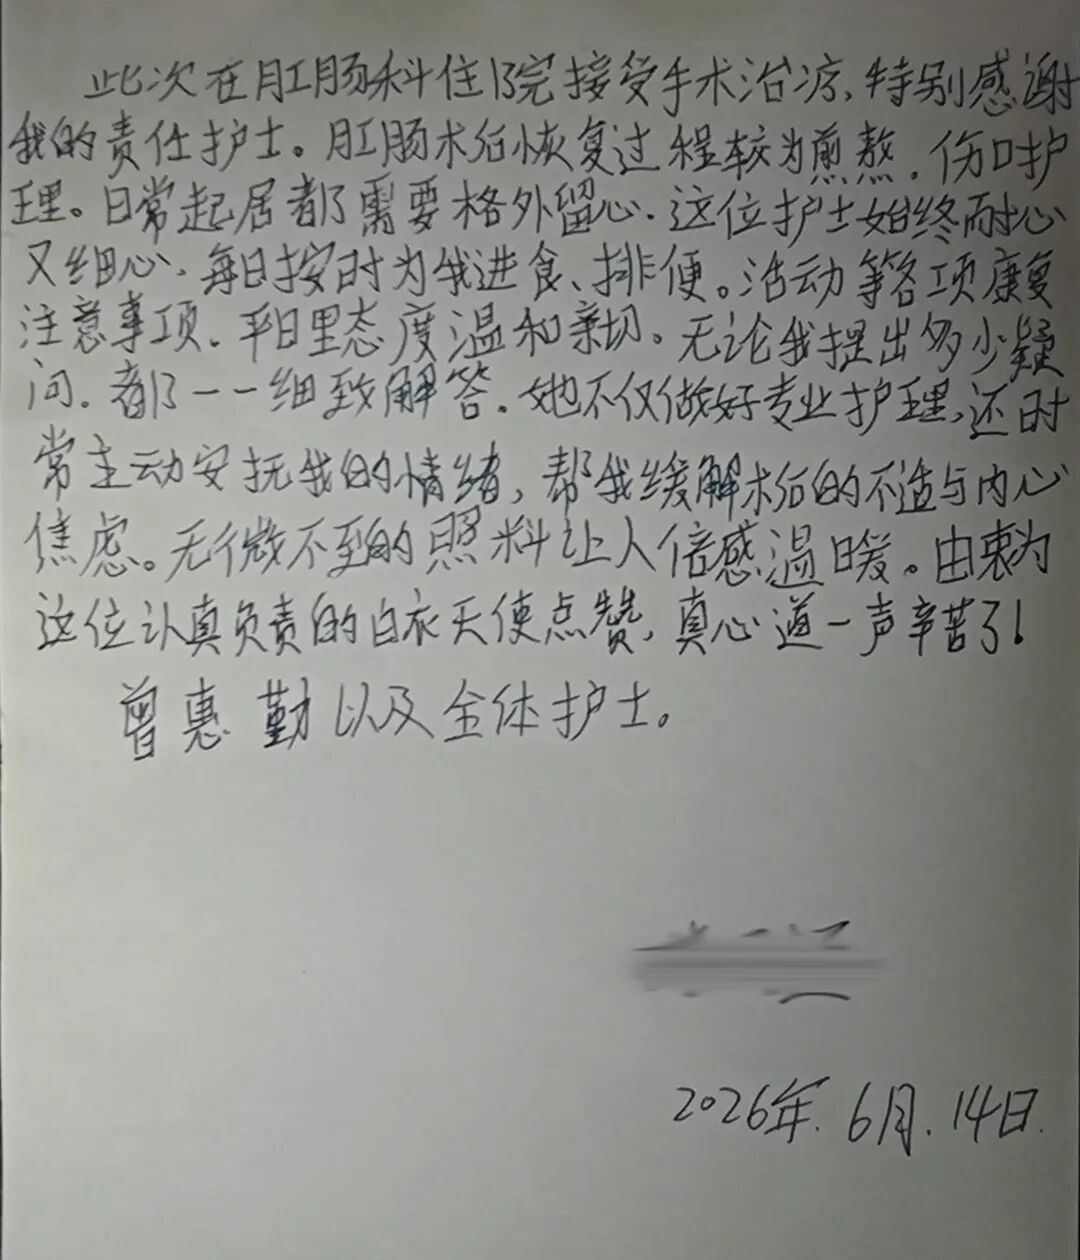 此次在肛肠科住院接受手术治疗,特别感谢
我的责任护士。肛肠术后恢复过程较为煎熬.伤口护
理。日常起居都需要格外留心.这位护士始终耐心
又细心.每日按时为我进食、排便。活动等各项康复
注意事项.平日里态度温和亲切。无论我提出多少疑
问.都一一细致解答.她不仅做好专业护理,还时
常主动安抚我的情绪,帮我缓解术后的不适与内心
焦虑。无微不到的照料让人倍感温暖。由衷为
这位认真负责的白衣天使点赞,真心道一声辛苦了!
曾惠勤以及全体护士。
2026年.6月.14日.